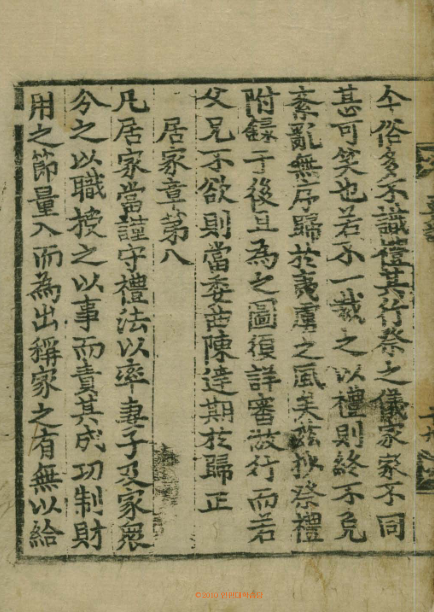 今俗多不識禮其行祭之儀家家不同
甚可笑也若不一裁之以禮則終不免
紊亂無序歸於夷虜之風矣玆抄祭禮
附錄于後且為之圖復詳審倣行而若
父兄不欲則當委曲陳達期於歸正
居家章第八
凡居家當謹守禮法以率妻子及家衆
分之以職授之以事而責其成功制財
用之節量入而為出稱家之有無以給